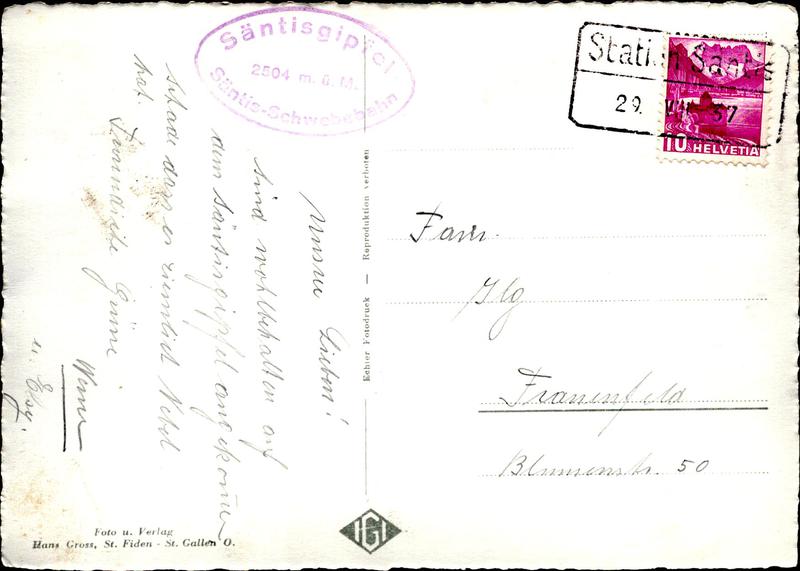 Säntisgipfel
2504 m. ü. M.
Säntis-Schwebebahn
Station Säntis
29. VIII. 37
10 HELVETIA
Meine Lieben!
Sind wohlbehalten auf
dem Säntisgipfel angekommen
schade dass es ziemlich Nebel
hat. Freundliche Grüsse
Werner
u. Elsy.
Echter Fotodruck — Reproduktion verboten
Fam.
Ilg
Frauenfeld
Blumenstr. 50
Foto u. Verlag
Hans Gross, St. Fiden - St. Gallen O.
IGI